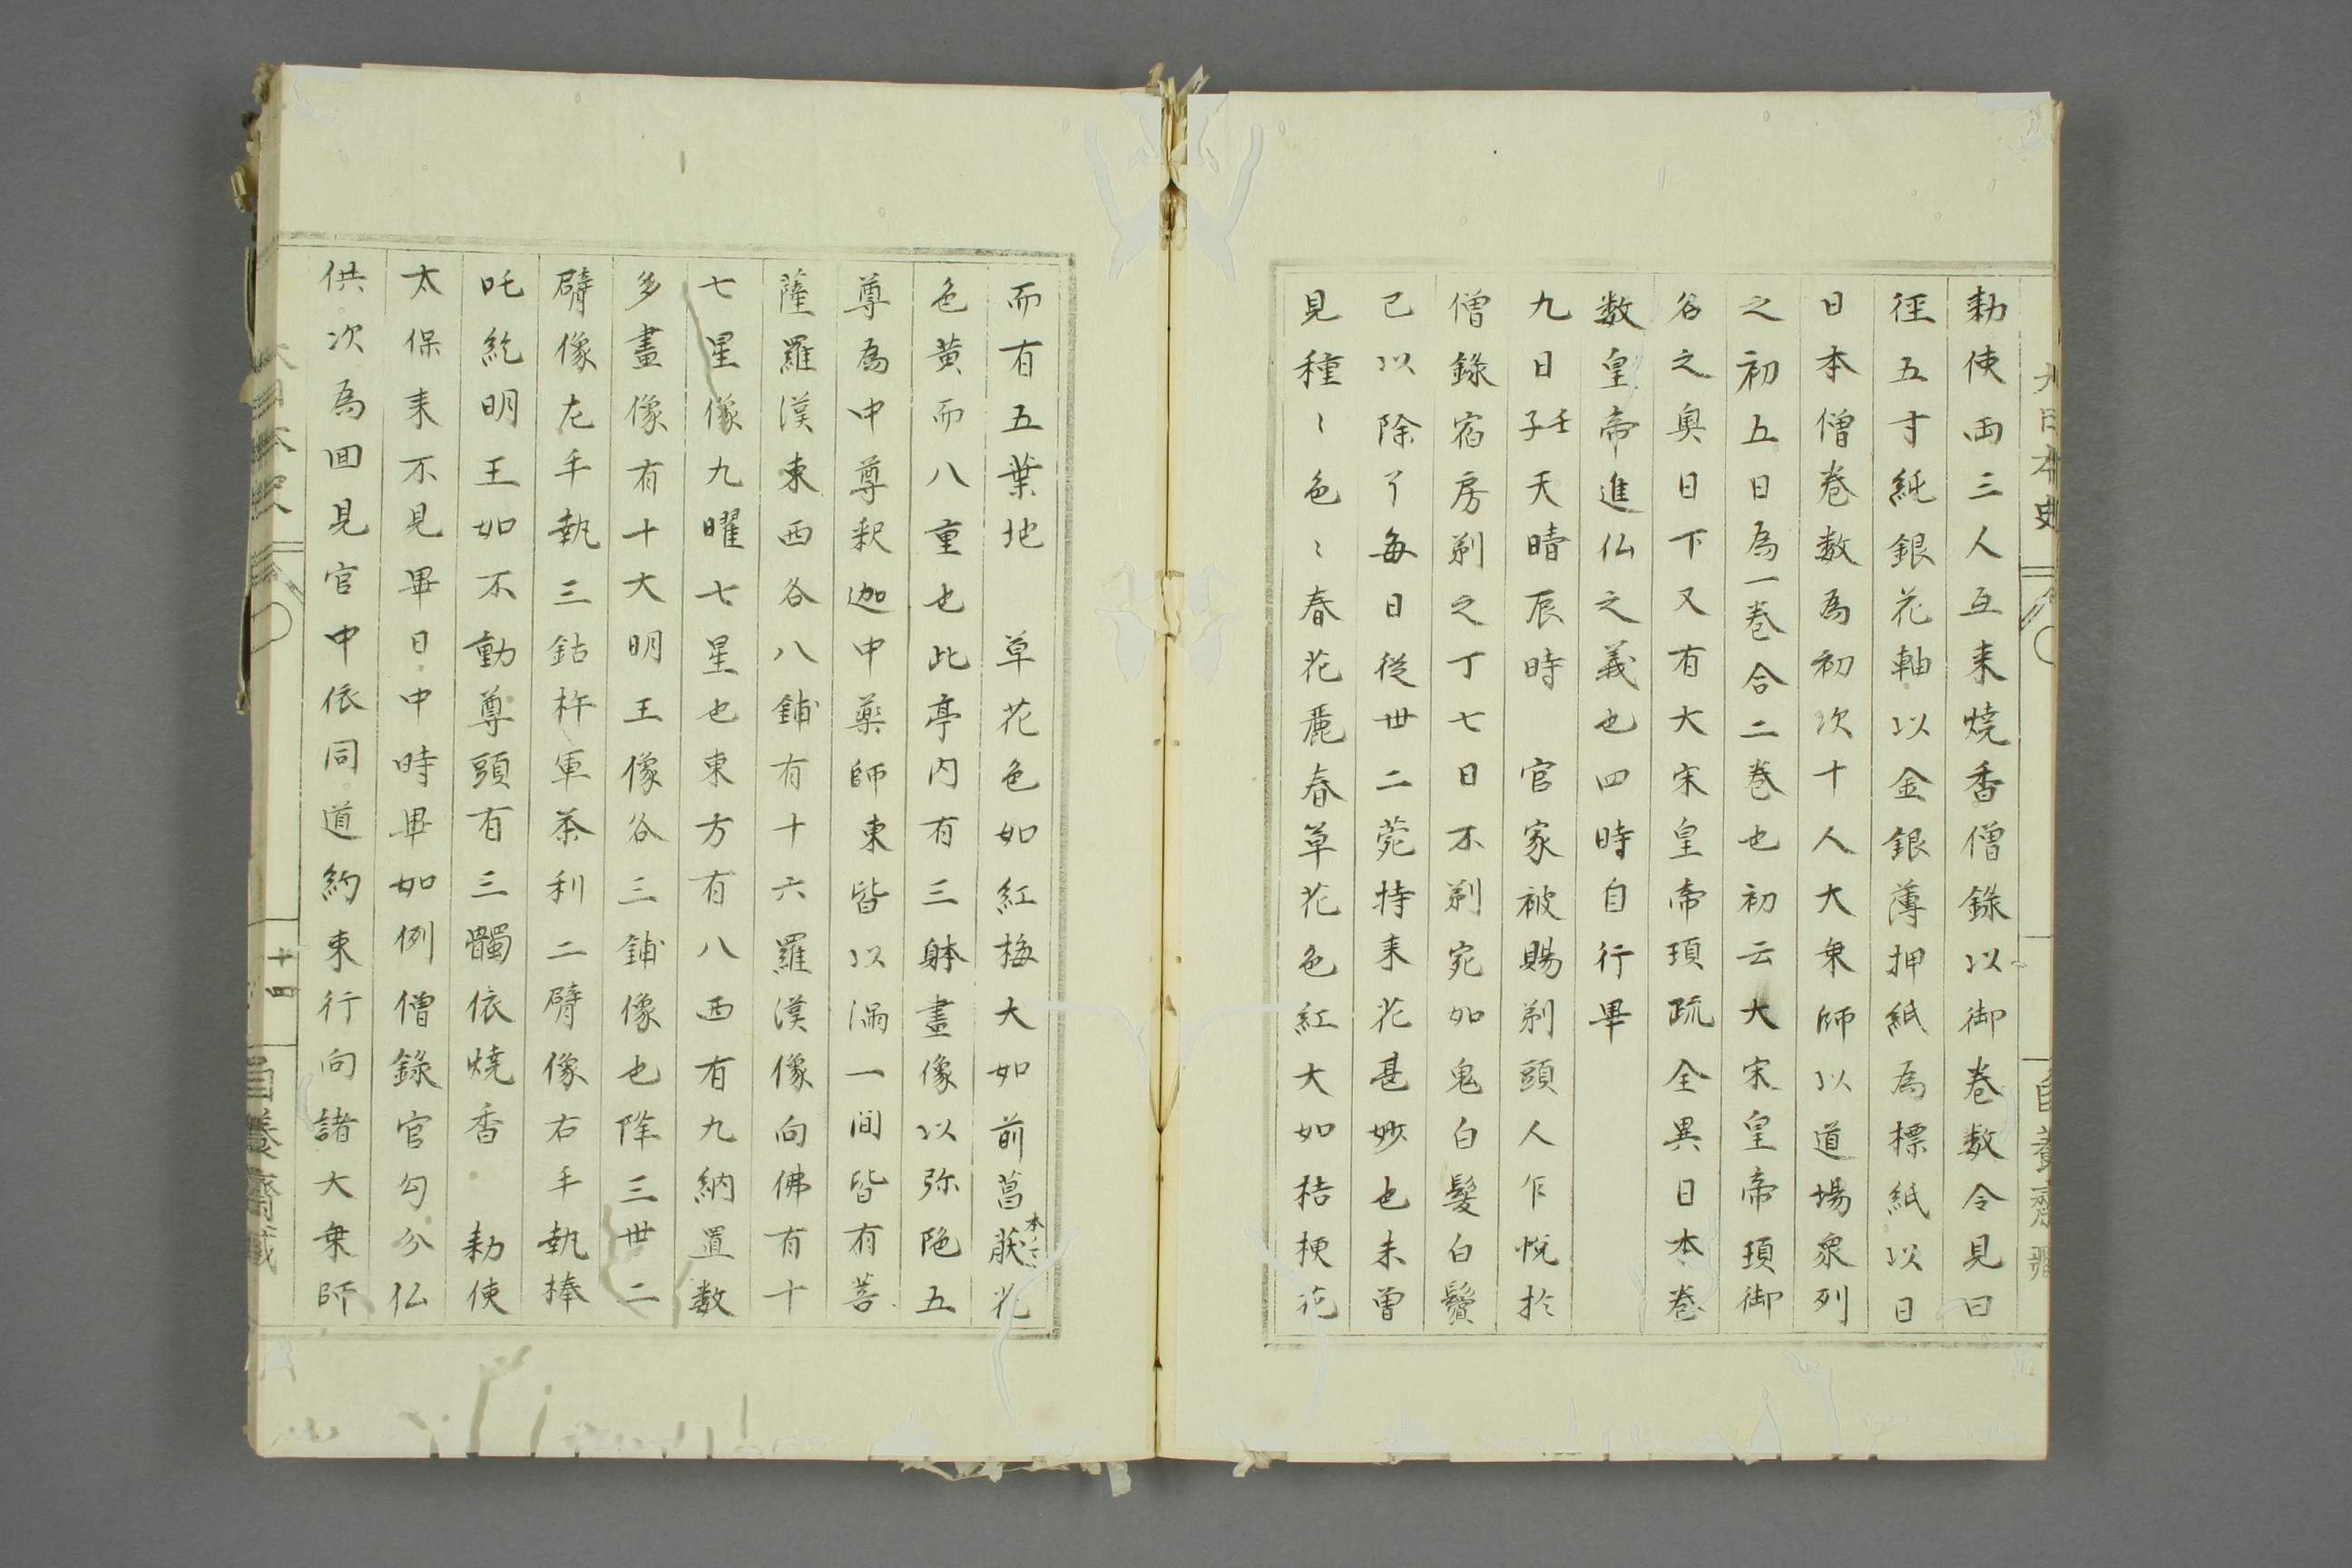 大日本史
自養齋藏
勅使両三人互来焼香僧録以御巻数令見曰
径五寸純銀花軸以金銀薄押紙為標紙以日
日本僧巻数為初次十人大乗師以道場衆列
之初五日為一巻合二巻也初云大宋皇帝頊御
名之奥日下又有大宋皇帝頊䟽全異日本巻
数皇帝進仏之義也四時自行畢
九日壬子天晴辰時　官家被賜剃頭人乍悦於
僧録宿房剃之丁七日不剃宛如鬼白髪白鬢
已以除了毎日従廿二菀持来花甚妙也未曽
見種〻色〻春花麗春草花色紅大如桔梗花
而有五葉地　草花色如紅梅大如前菖䒾花
本ノマヽ
色黄而八重也此亭内有三躰畫像以弥陁五
尊為中尊釈迦中薬師東皆以満一間皆有菩
薩羅漢東西各八鋪有十六羅漢像向佛有十
七星像九曜七星也東方有八西有九納置数
多畫像有十大明王像各三鋪像也降三世二
臂像左手執三鈷杵軍荼利二臂像右手執棒
吒紇明王如不動尊頭有三髑依焼香　勅使
太保来不見畢日中時畢如例僧録官勾分仏
供次為囬見官中依同道約束行向諸大乗師
大日本史
十四
自養齋藏